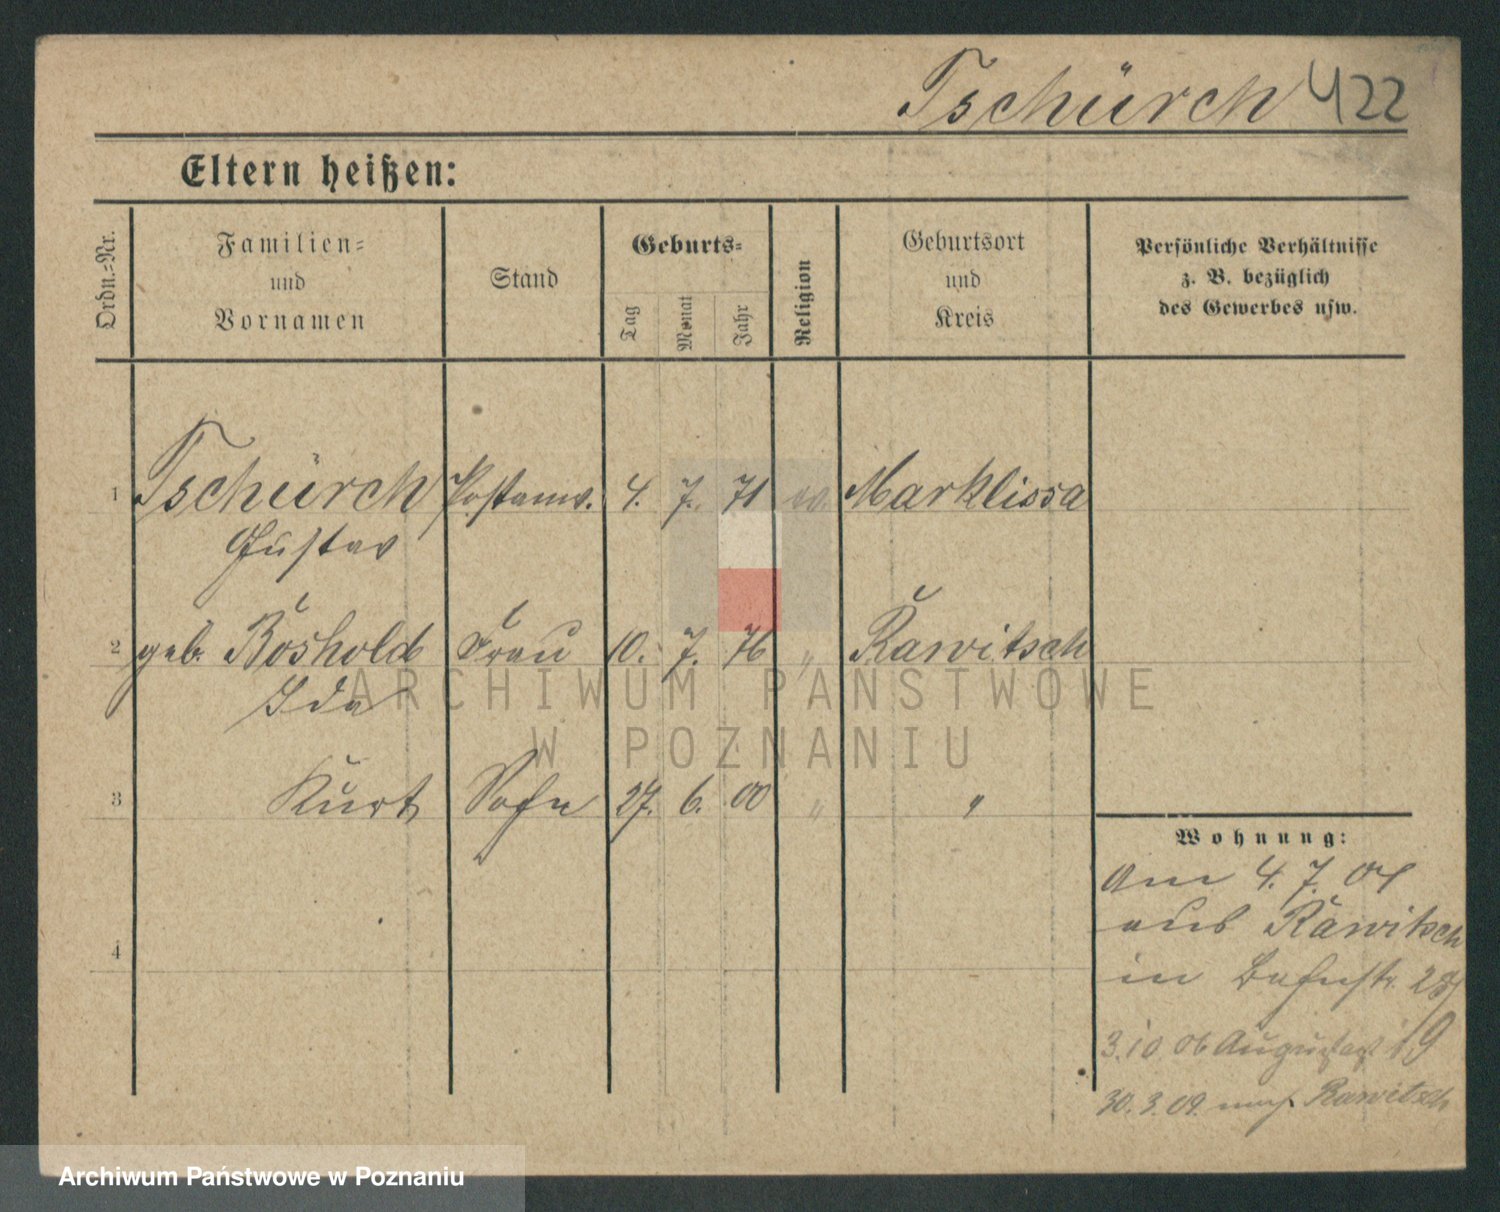 Tschürch 422
Eltern heißen:
Ordn.-Nr.
Familien-
und
Vornamen
Stand
Geburts-
Tag
Monat
Jahr
Religion
Geburtsort
und
Kreis
Persönliche Verhältnisse
z. B. bezüglich
des Gewerbes usw.
1 Tschürch Postanw. 4. 7. 71 ev. Marklissa
Gustav
2 geb. Boshold Frau 10. 7. 76 " Rawitsch
Ida
ARCHIWUM PAŃSTWOWE
W POZNANIU
3 Kurt Sohn 27. 6. 00 " "
4
Wohnung:
Am 4. 7. 04
aus Rawitsch
in Bahnstr.
3.10.06 19
30.3.09. nach Rawitsch
Archiwum Państwowe w Poznaniu